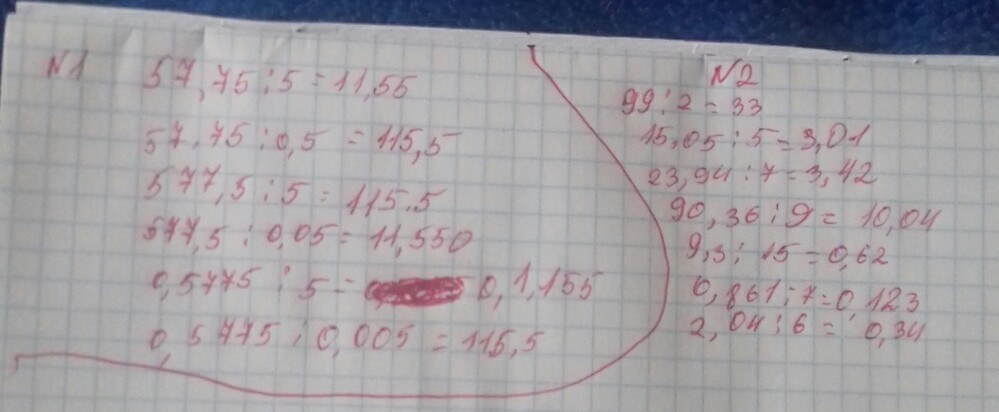 N1
57,75 : 5 = 11,55
57,75 : 0,5 = 115,5
577,5 : 5 = 115.5
577,5 : 0,05 = 11,550
0,5775 : 5 = 0,1,155
0,5775 : 0,005 = 115,5
N2
99 : 2 = 33
15,05 : 5 = 3,01
23,94 : 7 = 3,42
90,36 : 9 = 10,04
9,3 : 15 = 0,62
0,861 : 7 = 0,123
2,04 : 6 = 0,34